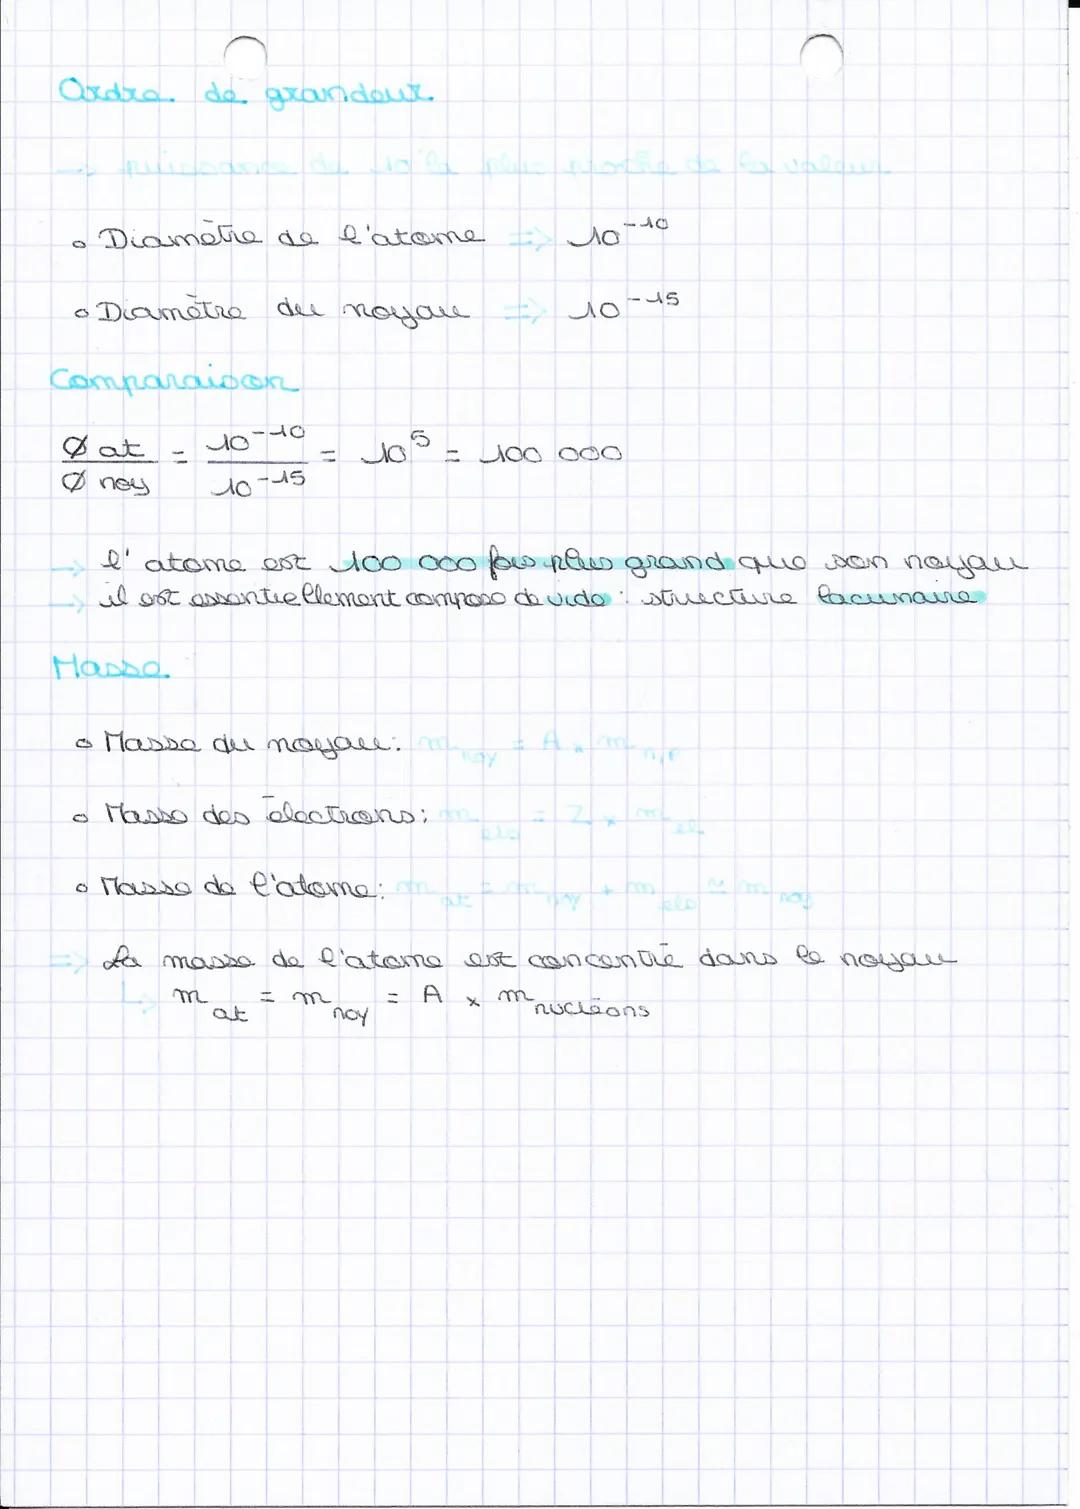 Ordre de grandeur
→ puissance de 10 la plus proche de la valeur
∘ Diamètre de l'atome ⇒ 10⁻¹⁰
∘ Diamètre du noyau ⇒ 10⁻¹⁵
Comparaison
Ø at / Ø noy = 10⁻¹⁰ / 10⁻¹⁵ = 10⁵ = 100 000
→ l'atome est 100 000 fois plus grand que son noyau
→ il est essentiellement composé de vide : structure lacunaire
Masse
∘ Masse du noyau: m noy = A × m n,p
∘ Masse des électrons: m éle = Z × m el
∘ Masse de l'atome: m at = m noy + m éle ≃ m noy
⇒ La masse de l'atome est concentré dans le noyau
↳ m at = m noy = A × m nucléons